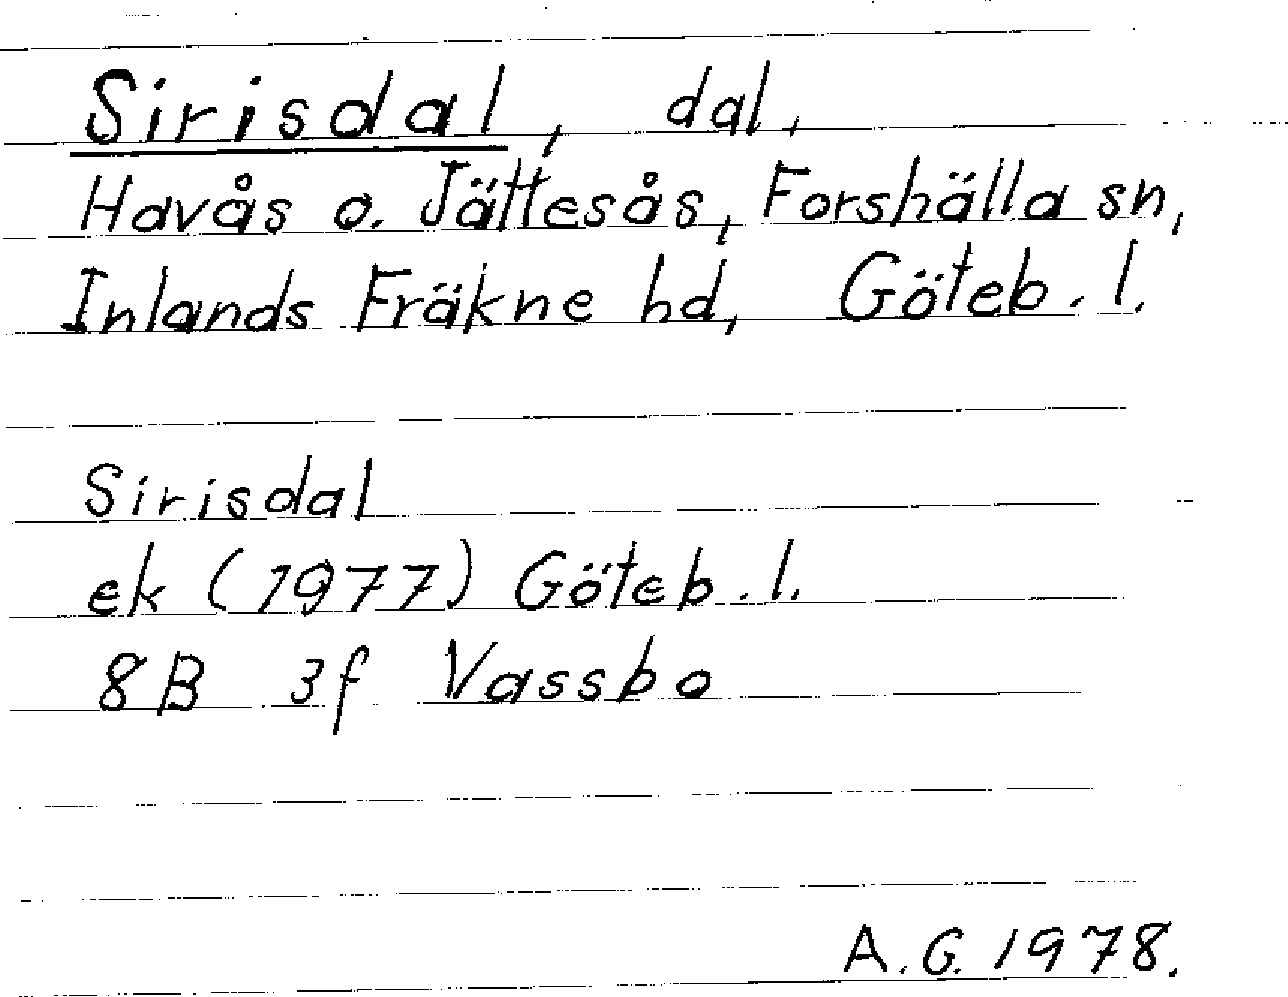 Sirisdal, dal,
Havås o. Jättesås, Forshälla sn,
Inlands Fräkne hd, Göteb. l.
Sirisdal
ek (1977) Göteb. l.
8B 3f Vassbo
A. G. 1978.